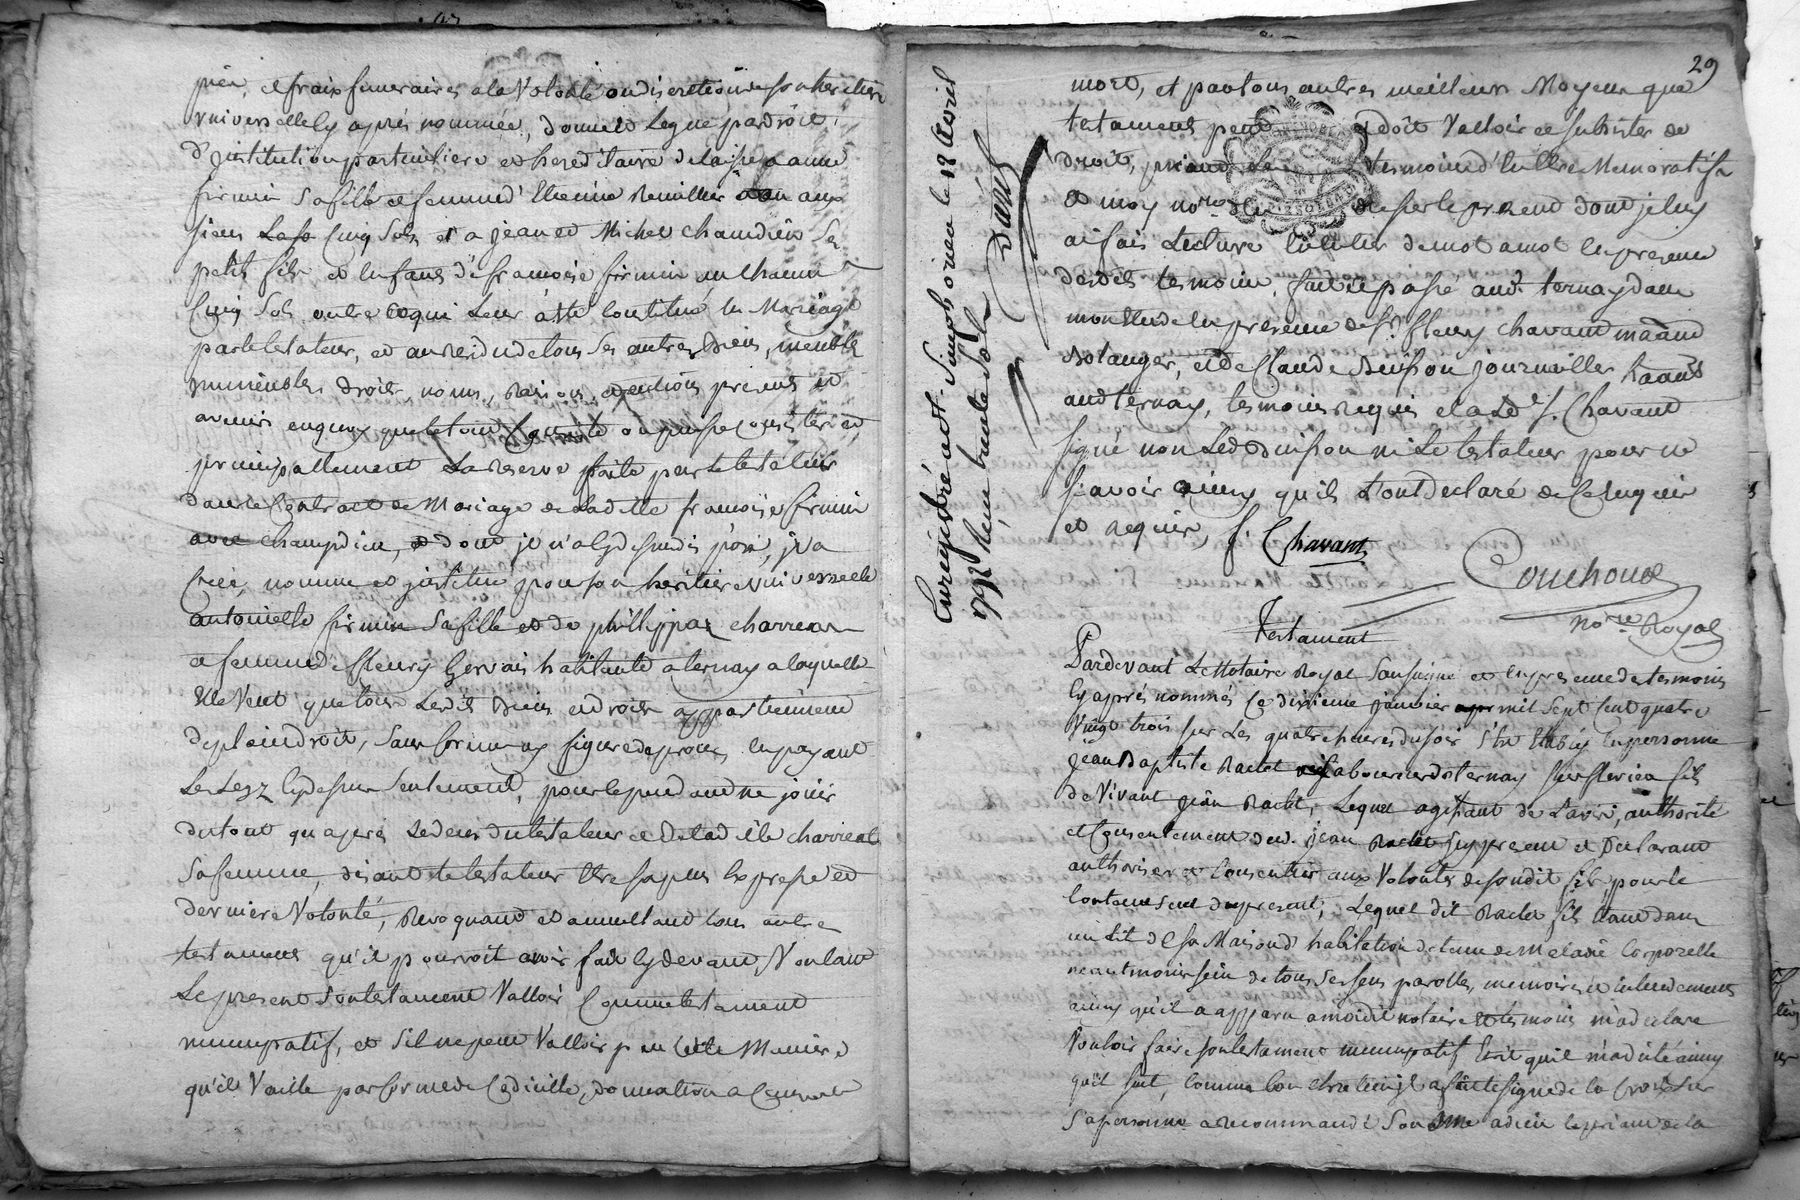 pies, et frais funeraires a la Volonté ou discretion de son heritiere
universelle cy après nommée, donne et legue par droit
d'institution particuliere et hereditaire delaisse a anne
firmin sa fille et femme d'Etienne aux
siens la so cinq sols et a jean et Michel chamdieu ses
petits fils et enfans de françoise firmin un chacun
Cinq Sols outre ce qui leur a êté constitué en Mariage
par le testateur, et au residu de tous ses autres biens, meubles
immeubles droits, noms, raisons, et actions presents et
avenir en quoy que le tout consiste ou puisse consister et
principallement la reserve faite par le testateur
dans le Contract de Mariage de laditte françoise firmin
avec champdieu, et dont je n'ay disposé, il a
Créé, nomme et institue pour son heritiere universelle
antoinette firmin sa fille et de phillippaz charrear
a femme de fleury Gervais habitante a ternay a laquelle
Il Veut que tous lesdits biens et droits appartiennent
de plein droit, sans forme ny figure de procès, en payant
les legz cy dessus seulement, pour le prendre et ne jouir
du tout qu'après le deces du testateur et de laditte charrear
sa femme, disant le testateur être sa pure expresse et
derniere Volonté, revoquant et annullant tous autres
testaments qu'il pourroit avoir fait cy devant, Voulant
le present son testament Valloir comme testament
nuncupatif, et s'il ne peut Valloir par cette Maniere
qu'il Vaille par forme de Codicille, donnation a Cause de
29
mort, et par tous autres meilleurs Moyens que
testament peut et doit Valloir et subsister de
droit, priant les temoins d'en être Memoratifs
et moy nore de le present dont je luy
ai fait Lecture entiere de mot a mot en presence
desdits temoins, fait et passé aud. ternay dans
mon Etude en presence de sr. fleury chavant maand
Bolanger, et de Claude Buisson journallier haants
aud ternay, temoins requis et a led. sr. Chavant
signé non led Buisson ni le testateur pour ne
sçavoir ainsy qu'ils l'ont declaré de ce enquis
et requis, f. Chavant
Couchoud
nore Royal
Enregistré a St. Simphorien le 18 Avril
1792 Reçu trente Sols
Testament
Pardevant Le Notaire Royal Soussigné et en presence des temoins
cy aprés nommés Ce dixieme janvier mil sept Cent quatre
Vingt trois sur les quatre heures du soir s'est Etably en personne
jean Baptiste Ractet laboureur de ternay sur flevieu fils
de Vivant jean Ractet, Lequel agissant de l'avis, authorité
et Consentement dud. jean Ractet son pere et Declarant
authoriser et Consentir aux Volontés de sondit fils pour le
contenu seul du present, Lequel dit Ractet fils etant dans
un Lit de sa Maison d'habitation detenu de Maladie Corporelle
neantmoins sein de tous ses sens parolles, memoires et entendement
ainsy qu'il a apparu a moidit notaire et temoins m'a declaré
Vouloir faire son testament nuncupatif Ecrit qu'il m'a dicté ainsy
qu'il suit, Comme bon chretien il a fait le signe de la Croix sur
sa personne a recommandé Son Ame a dieu le priant de la